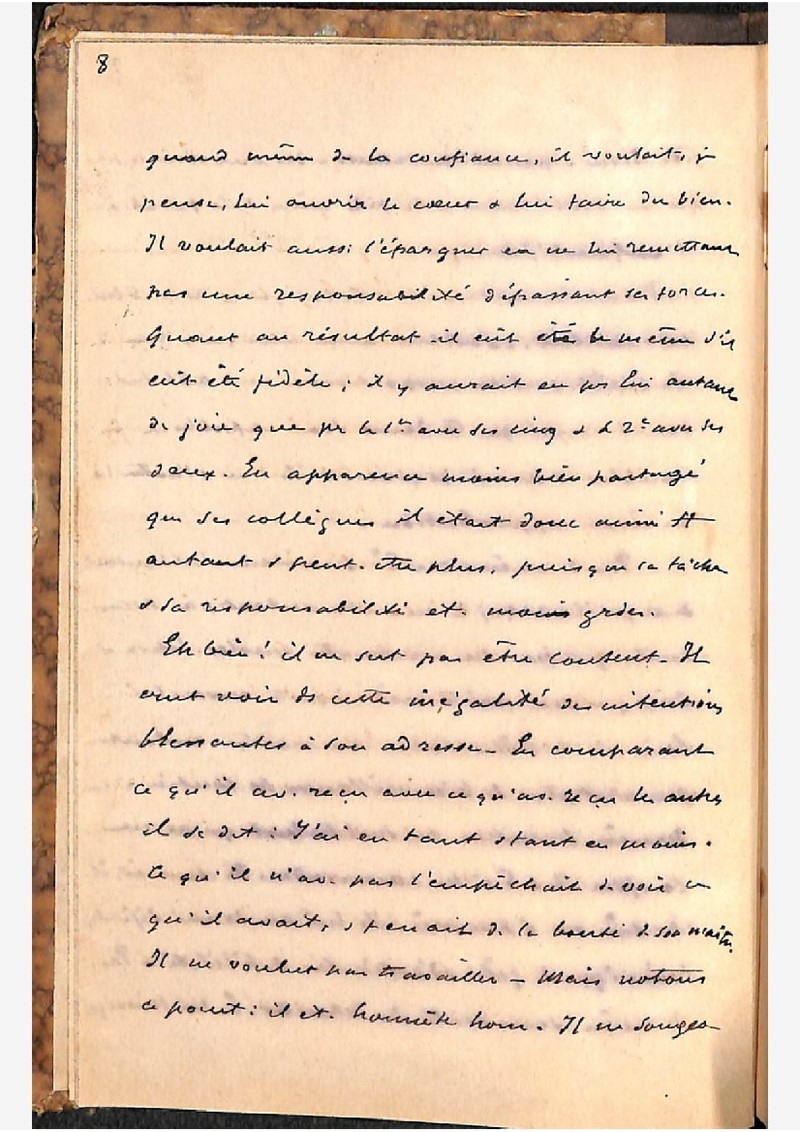 8
quand même de la confiance, il voulait, je
pense, lui ouvrir le cœur & lui faire du bien.
Il voulait aussi l'épargner en ne lui remettant
pas une responsabilité dépassant ses forces.
Quant au résultat il eût été le même s'il
eût été fidèle ; il y aurait eu pr lui autant
de joie que pr le 1er avec ses cinq & le 2e avec ses
deux. En apparence moins bien partagé
que ses collègues il était donc aimé tt
autant & peut-être plus, puisque sa tâche
& sa responsabilité et. moins grdes.
Eh bien ! il ne sut pas être content - Il
crut voir ds cette inégalité des intentions
blessantes à son adresse - En comparant
ce qu'il av. reçu avec ce qu'av. reçu les autres
il se dit : J'ai eu tant & tant en moins.
Ce qu'il n'av. pas l'empêchait de voir ce
qu'il avait, & tenait de la bonté de son maître.
Il ne voulut pas travailler - Mais notons
ce point : il et. honnête hom. Il ne songea